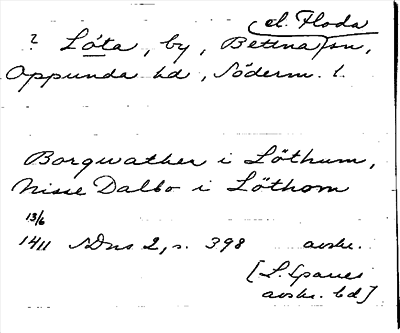 el. Floda
? Löta, by, Bettna sn,
Oppunda hd, Söderm. l.
Borgwather i Löthum,
Nisse Dalbo i Löthom
13/6
1411 SDns 2, s. 398 avskr.
[L. Spares
avskr. bd]